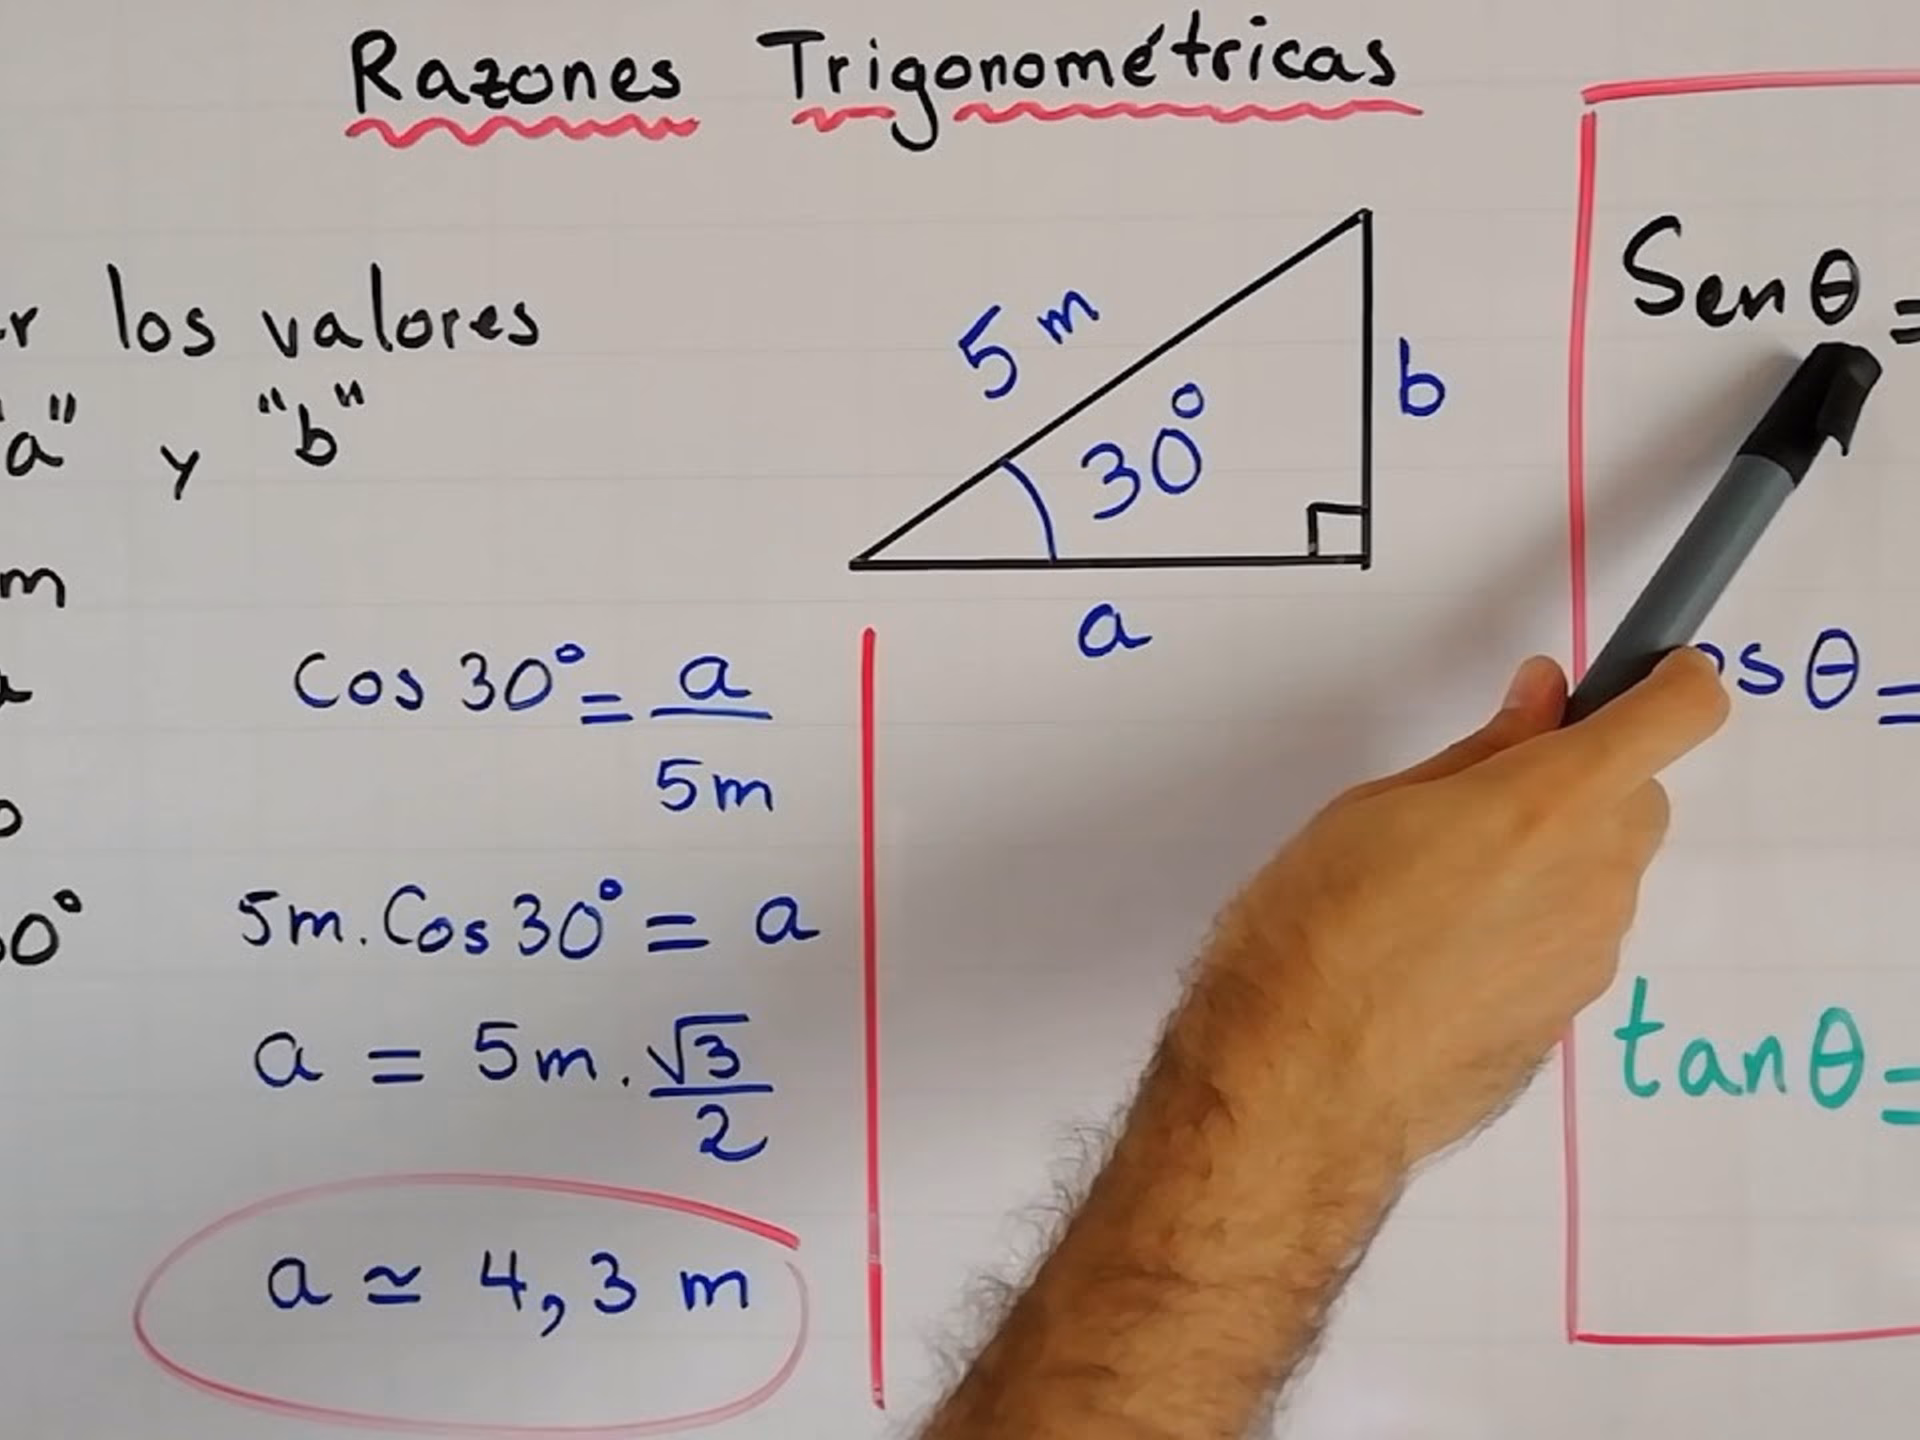 Razones Trigonométricas
r los valores
"a" y "b"
m
5 m
30°
b
a
Cos 30° = a
5m
0° 5m . Cos 30° = a
a = 5m . √3
2
a ≃ 4,3 m
Sen θ =
os θ =
tan θ =